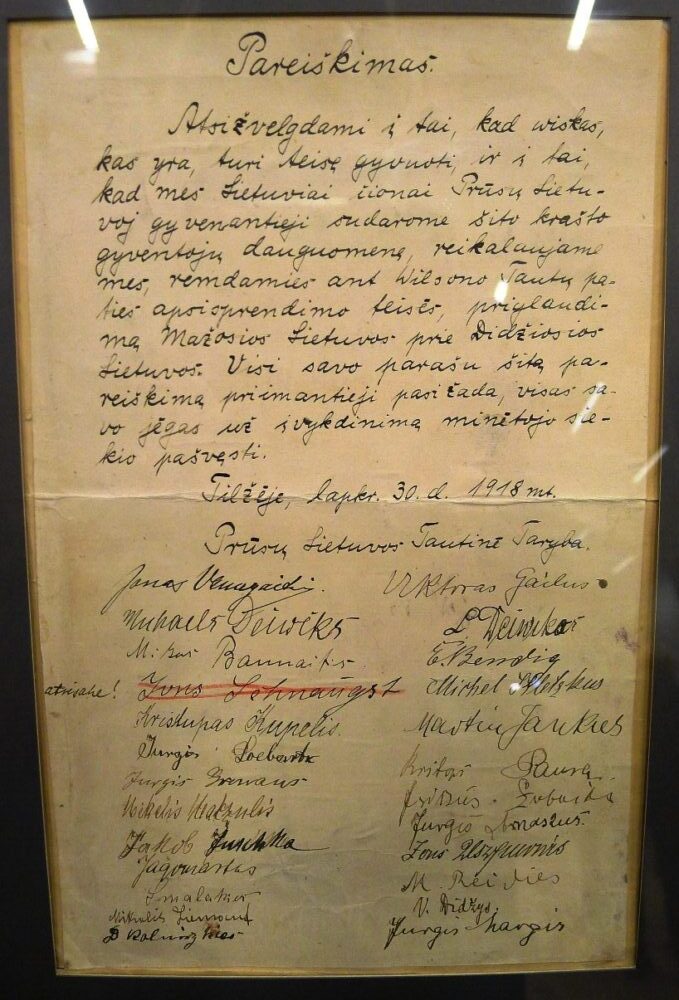 Pareiškimas.
Atsižvelgdami į tai, kad wiskas,
kas yra, turi teisę gyvuoti, ir į tai,
kad mes Lietuviai čionai Prūsų Lietu-
voj gyvenantieji sudarome šito krašto
gyventojų dauguomenę, reikalaujame
mes, remdamies ant Wilsono Tautų pa-
ties apsisprendimo teisės, priglaudi-
mą Mažosios Lietuvos prie Didžiosios
Lietuvos. Visi savo parašu šitą pa-
reiškimą priimantieji pasižada, visas sa-
vo jėgas už įvykdinimą minėtojo sie-
kio pašvęsti.
Tilžėje, lapkr. 30. d. 1918 mt.
Prūsų Lietuvos Tautinė Taryba.
Jonas Vanagaidis. Viktoras Gailus
Michaels Deiwiks L. Deiwikas
Mikas Bannaitis E. Bendig
Jons Lehnaugst Michel
Kristupas Kupelis. Martin Jankus
Jurgis
Jurgis
Mikelis Jurgis
Jakob Juschka Jons
Jagomastas M. Reidies
V. Didžys.
Jurgis Margis